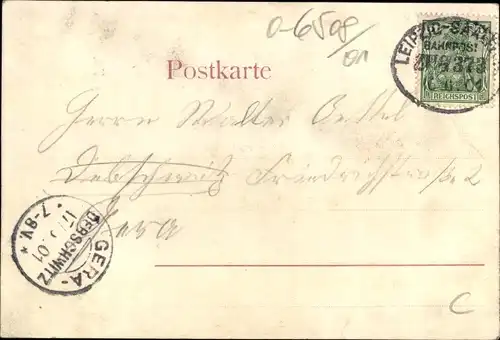 0-6508/01
Postkarte
LEIPZIG-
BAHNPOST
ZUG 373
REICHSPOST
Herrn Walter
Debschwitz Friedrichstraße 2
Gera
GERA-
DEBSCHWITZ
7-8V.
C